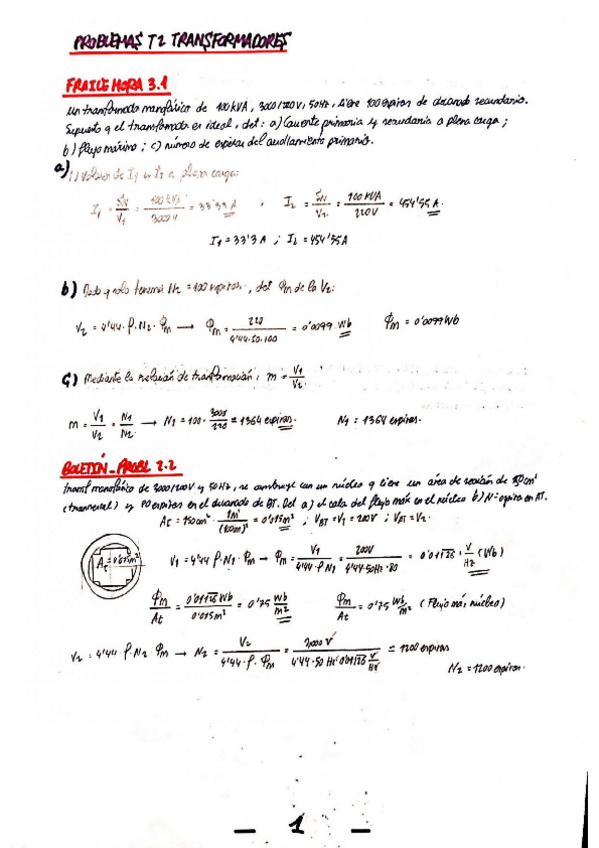 PROBLEMAS T2 TRANSFORMADORES
FRAILE MORA 3.1
Un transformador monofásico de 100 kVA, 3000/220 V, 50Hz, tiene 100 espiras de devanado secundario.
Supuesto q el transformador es ideal, det: a) Corriente primaria y secundaria a plena carga;
b) flujo máximo; c) número de espiras del arrollamiento primario.
a) 1) Valores de I1 y I2 a plena carga:
I1 = SN/V1 = 100 kVA/3000 V = 33'33 A , I2 = SN/V2 = 100 KVA/220V = 454'55 A.
I1 = 33'3 A ; I2 = 454'55A
b) Dado q solo tenemos N2 = 100 espiras, det Φm de la V2:
V2 = 4'44 · f · N2 · Φm → Φm = 220/4'44·50·100 = 0'0099 Wb Φm = 0'0099 Wb
C) Mediante la relación de transformación, m = V1/V2.
m = V1/V2 = N1/N2 → N1 = 100 · 3000/220 = 1364 espiras. N1 = 1364 espiras.
BOLETÍN - PROBL 2.2
transf monofásico de 3000/200V y 50Hz, se construye con un núcleo q tiene un área de sección de 150cm²
(transversal) y 80 espiras en el devanado de BT. Det a) el cala del flujo máx en el núcleo b) Nº espiras en AT.
At = 150cm² · 1m²/(100m)² = 0'015m² ; VBT = V1 = 200V ; VBT = V2.
At = 0'015m²
V1 = 4'44 f · N1 · Φm → Φm = V1/4'44 · f · N1 = 200V/4'44·50Hz·80 = 0'01126 · V/Hz (Wb)
Φm/At = 0'01126 Wb/0'015m² = 0'75 Wb/m² Φm/At = 0'75 Wb/m² (Flujo máx núcleo)
V2 = 4'44 · f · N2 · Φm → N2 = V2/4'44 · f · Φm = 3000 V/4'44·50 Hz·0'01126 V/Hz = 1200 espiras
N2 = 1200 espiras.
1